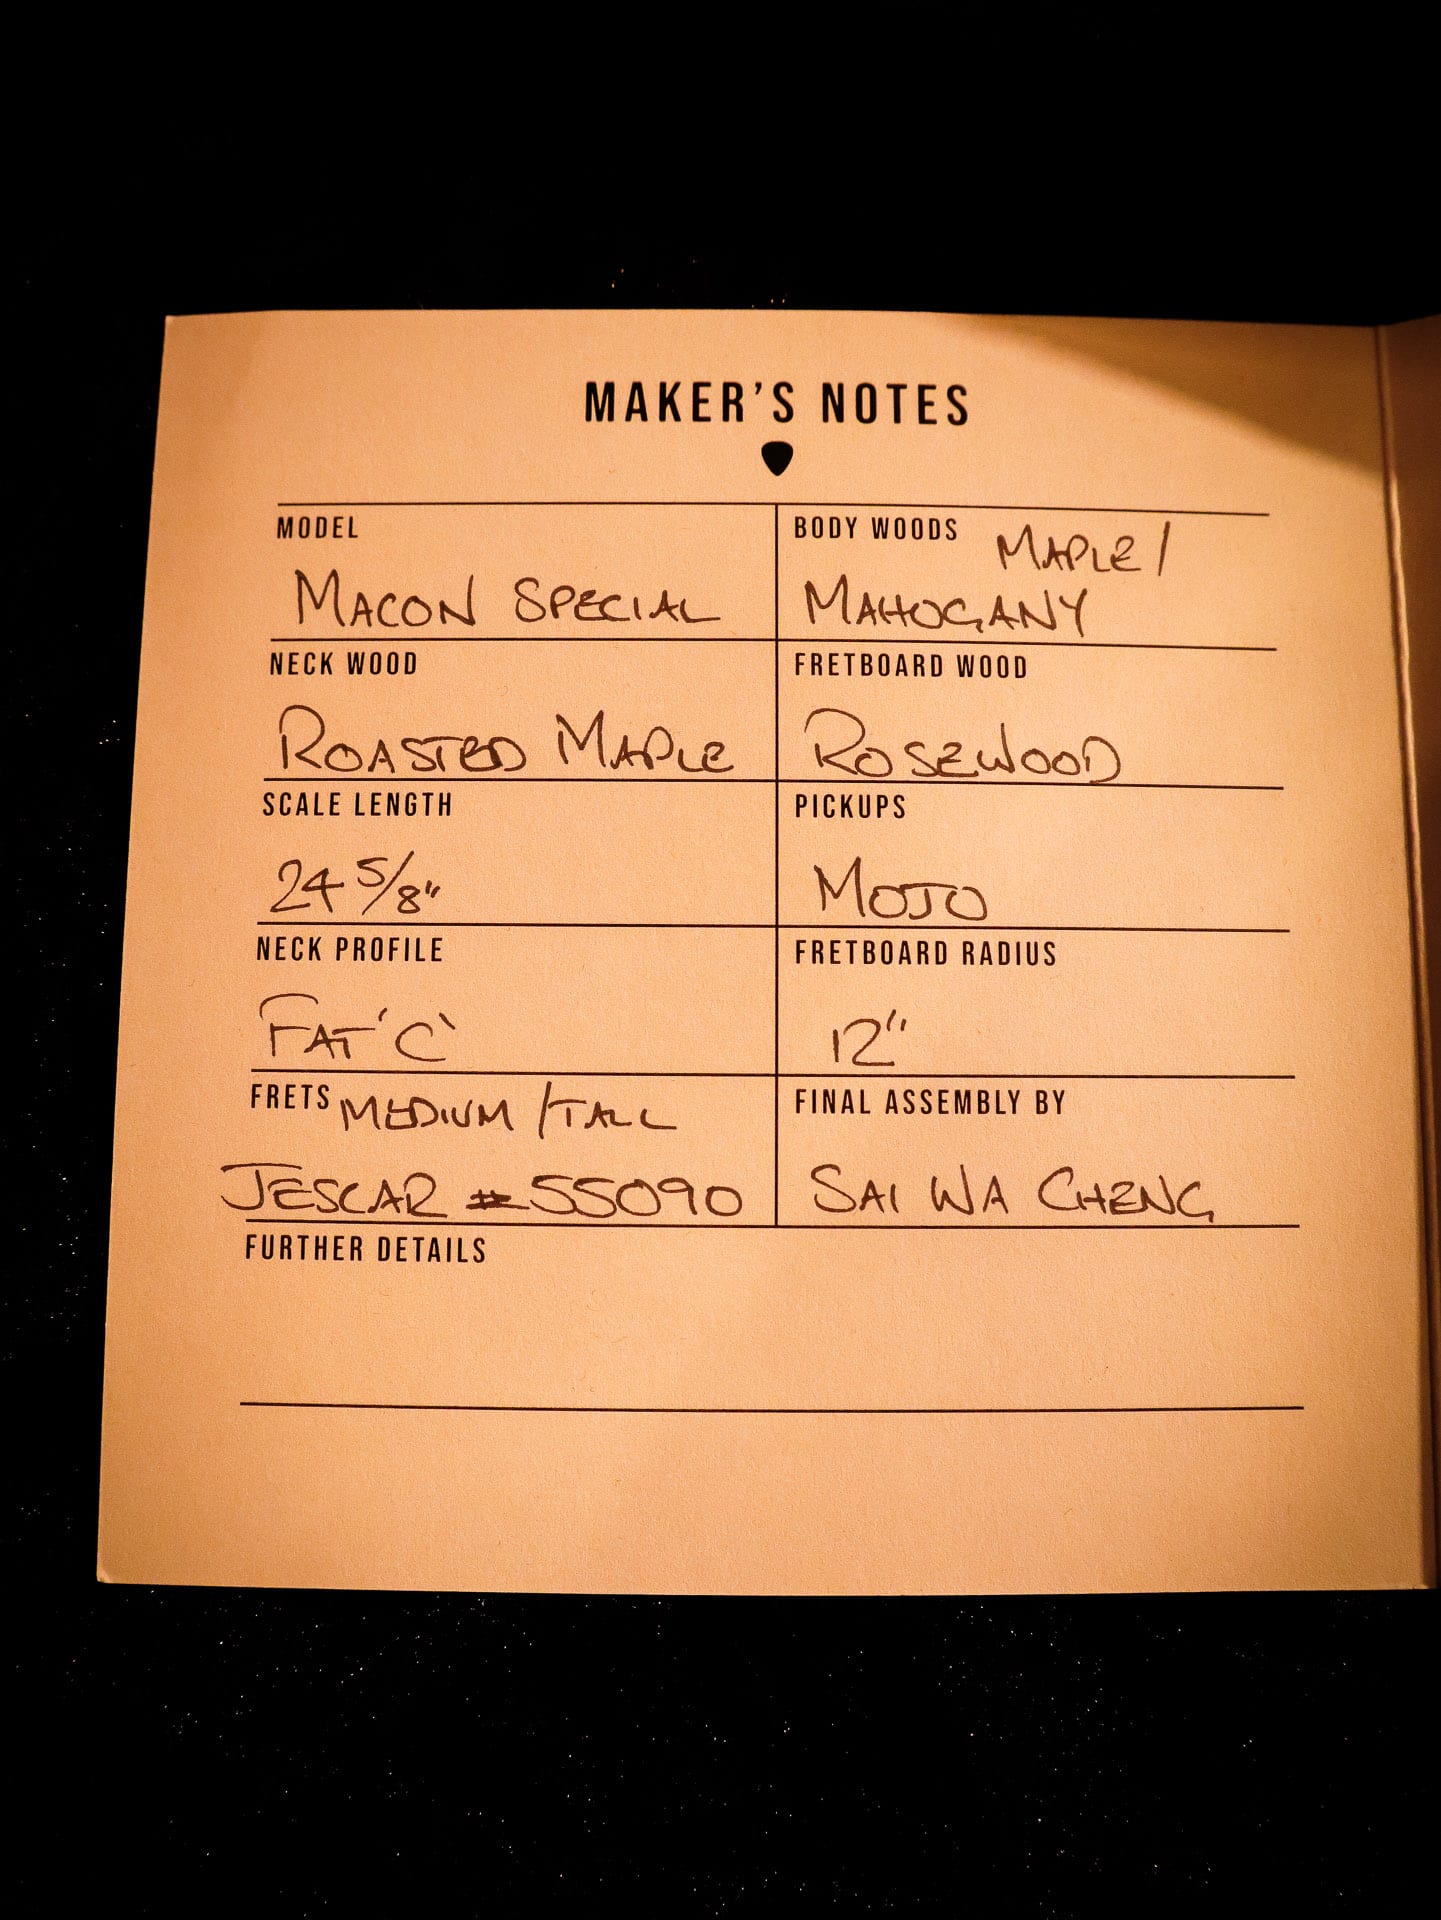 MAKER'S NOTES
MODEL
MACON SPECIAL
BODY WOODS MAPLE/
MAHOGANY
NECK WOOD
ROASTED MAPLE
FRETBOARD WOOD
ROSEWOOD
SCALE LENGTH
24 5/8"
PICKUPS
MOJO
NECK PROFILE
FAT 'C'
FRETBOARD RADIUS
12"
FRETS MEDIUM/TALL
JESCAR #55090
FINAL ASSEMBLY BY
SAI WA CHENG
FURTHER DETAILS